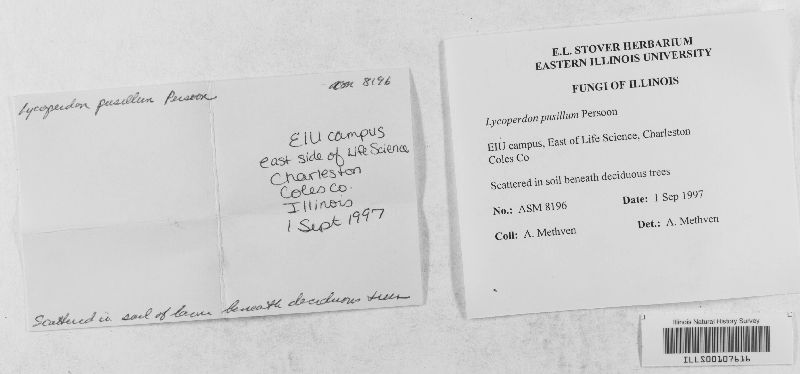 Lycoperdon pusillum Persoon
asm 8196
EIU campus
east side of Life Science
Charleston
Coles Co.
Illinois
1 Sept 1997
Scattered in soil of lawn beneath deciduous trees
E.L. STOVER HERBARIUM
EASTERN ILLINOIS UNIVERSITY
FUNGI OF ILLINOIS
Lycoperdon pusillum Persoon
EIU campus, East of Life Science, Charleston
Coles Co
Scattered in soil beneath deciduous trees
No.: ASM 8196 Date: 1 Sep 1997
Coll: A. Methven Det.: A. Methven
Illinois Natural History Survey
ILLS00107616